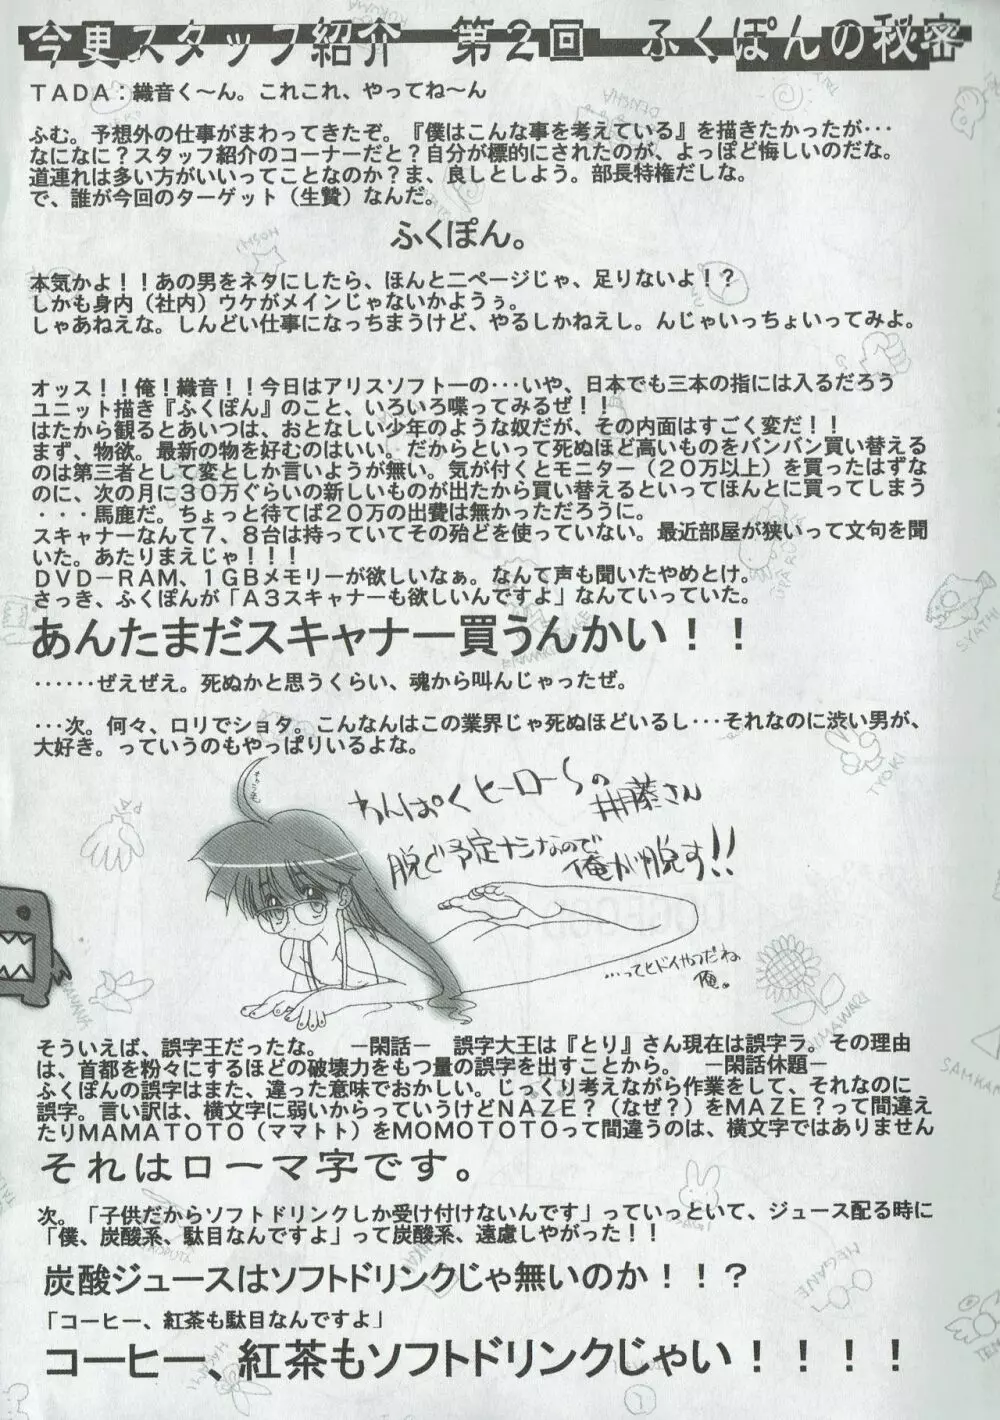 今更スタッフ紹介　第２回　ふくぽんの秘密
ＴＡＤＡ：織音く～ん。これこれ、やってね～ん
ふむ。予想外の仕事がまわってきたぞ。『僕はこんな事を考えている』を描きたかったが・・・
なになに？スタッフ紹介のコーナーだと？自分が標的にされたのが、よっぽど悔しいのだな。
道連れは多い方がいいってことなのか？ま、良しとしよう。部長特権だしな。
で、誰が今回のターゲット（生贄）なんだ。
ふくぽん。
本気かよ！！あの男をネタにしたら、ほんと二ページじゃ、足りないよ！？
しかも身内（社内）ウケがメインじゃないかようぅ。
しゃあねえな。しんどい仕事になっちまうけど、やるしかねえし。んじゃいっちょいってみよ。
オッス！！俺！織音！！今日はアリスソフト一の・・・いや、日本でも三本の指には入るだろう
ユニット描き『ふくぽん』のこと、いろいろ喋ってみるぜ！！
はたから観るとあいつは、おとなしい少年のような奴だが、その内面はすごく変だ！！
まず、物欲。最新の物を好むのはいい。だからといって死ぬほど高いものをバンバン買い替える
のは第三者として変としか言いようが無い。気が付くとモニター（２０万以上）を買ったはずな
のに、次の月に３０万ぐらいの新しいものが出たから買い替えるといってほんとに買ってしまう
・・・馬鹿だ。ちょっと待てば２０万の出費は無かっただろうに。
スキャナーなんて７、８台は持っていてその殆どを使っていない。最近部屋が狭いって文句を聞
いた。あたりまえじゃ！！！
ＤＶＤ－ＲＡＭ、１ＧＢメモリーが欲しいなぁ。なんて声も聞いたやめとけ。
さっき、ふくぽんが「Ａ３スキャナーも欲しいんですよ」なんていっていた。
あんたまだスキャナー買うんかい！！
・・・・・・ぜえぜえ。死ぬかと思うくらい、魂から叫んじゃったぜ。
・・・次。何々、ロリでショタ。こんなんはこの業界じゃ死ぬほどいるし・・・それなのに渋い男が、
大好き。っていうのもやっぱりいるよな。
わんぱくヒーローSの
井藤さん
脱ぐ予定ナシなので
俺が脱す!!
…ってヒドイやつだね
俺。
そういえば、誤字王だったな。　－閑話－　誤字大王は『とり』さん現在は誤字ラ。その理由
は、首都を粉々にするほどの破壊力をもつ量の誤字を出すことから。　－閑話休題－
ふくぽんの誤字はまた、違った意味でおかしい。じっくり考えながら作業をして、それなのに
誤字。言い訳は、横文字に弱いからっていうけどＮＡＺＥ？（なぜ？）をＭＡＺＥ？って間違え
たりＭＡＭＡＴＯＴＯ（ママトト）をＭＯＭＯＴＯＴＯって間違うのは、横文字ではありません
それはローマ字です。
次。「子供だからソフトドリンクしか受け付けないんです」っていっといて、ジュース配る時に
「僕、炭酸系、駄目なんですよ」って炭酸系、遠慮しやがった！！
炭酸ジュースはソフトドリンクじゃ無いのか！！？
「コーヒー、紅茶も駄目なんですよ」
コーヒー、紅茶もソフトドリンクじゃい！！！！
HOSHI
DENSHA
SYATHI
TYOKI
BANANA
HIMAWARI
MEGANE
1